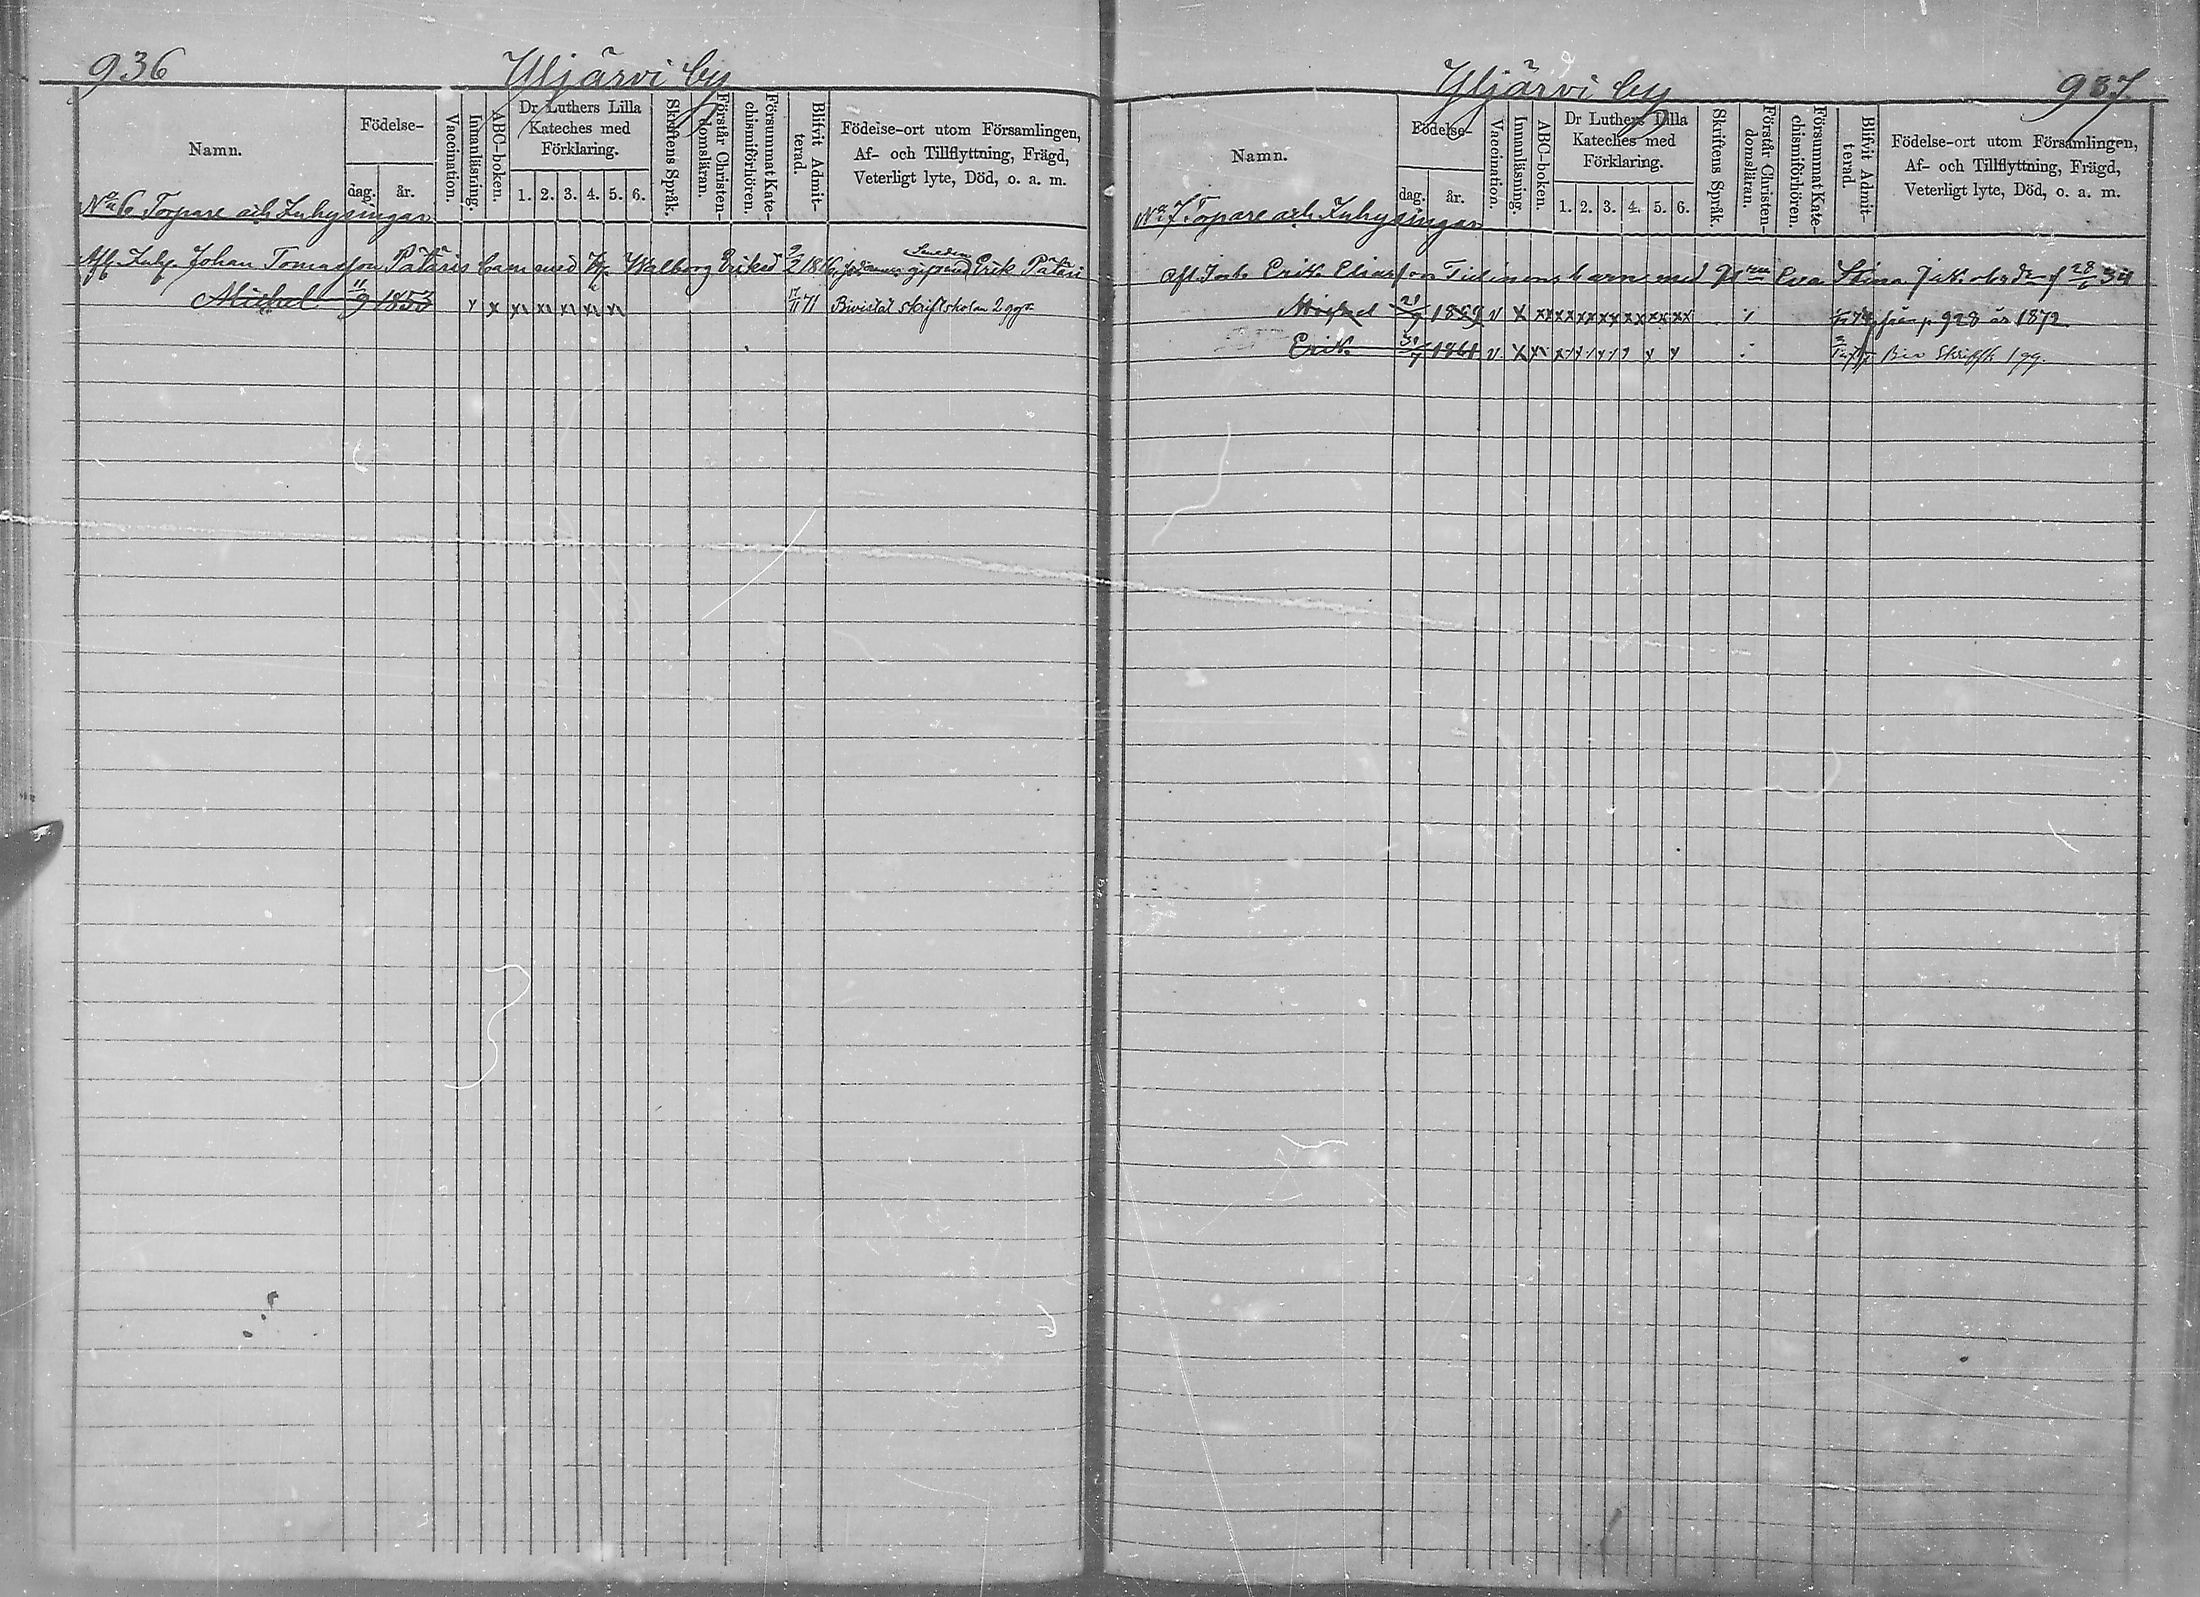 936
Yljärvi by
Namn.
Födelse-
dag.
år.
Vaccination.
Innanläsning.
ABC-boken.
Dr Luthers Lilla
Kateches med
Förklaring.
1. 2. 3. 4. 5. 6.
Skriftens Språk.
Förstår Christen-
domsläran.
Försummat Kate-
chismiförhören.
Blifvit Admit-
terad.
Födelse-ort utom Församlingen,
Af- och Tillflyttning, Frägd,
Veterligt lyte, Död, o. a. m.
No 6 Torpare och Inhysingar
Afl. Inhy. Johan Tomasson Pätäris barn med Walborg Eriksd Erik Pätäri
Michel 11/9 1853 x x xx xx xx xx xx 17/11 71 Bivistat skriftskolan 2 ggr
937
Yljärvi by
Namn.
Födelse-
dag.
år.
Vaccination.
Innanläsning.
ABC-boken.
Dr Luthers Lilla
Kateches med
Förklaring.
1. 2. 3. 4. 5. 6.
Skriftens Språk.
Förstår Christen-
domsläran.
Försummat Kate-
chismiförhören.
Blifvit Admit-
terad.
Födelse-ort utom Församlingen,
Af- och Tillflyttning, Frägd,
Veterligt lyte, Död, o. a. m.
No 7 Torpare och Inhysingar
Afl. Erik Eliasson barn med Eva Stina Jakobsdr f 28/6 34
Michel 1859 v x xx xx xx xx xx xx xx p 928 år 1872
Erik 30/7 1861 v x Biv Skriftsk 1 gg.